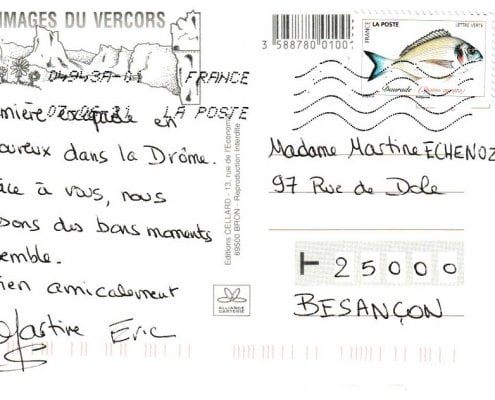 IMAGES DU VERCORS
04943A-01 FRANCE
07-06-21 LA POSTE
mière escapade en
oureux dans la Drôme.
âce à vous, nous
sons des bons moments
semble.
ien amicalement
Martine Eric
Editions CELLARD - 13, rue de l'Economie
69500 BRON - Reproduction Interdite
ALLIANCE
CARTERIE
3 588780 01001
FRANCE
LA POSTE
LETTRE VERTE
Daurade
Madame Martine ECHENOZ
97 Rue de Dole
25000
BESANÇON